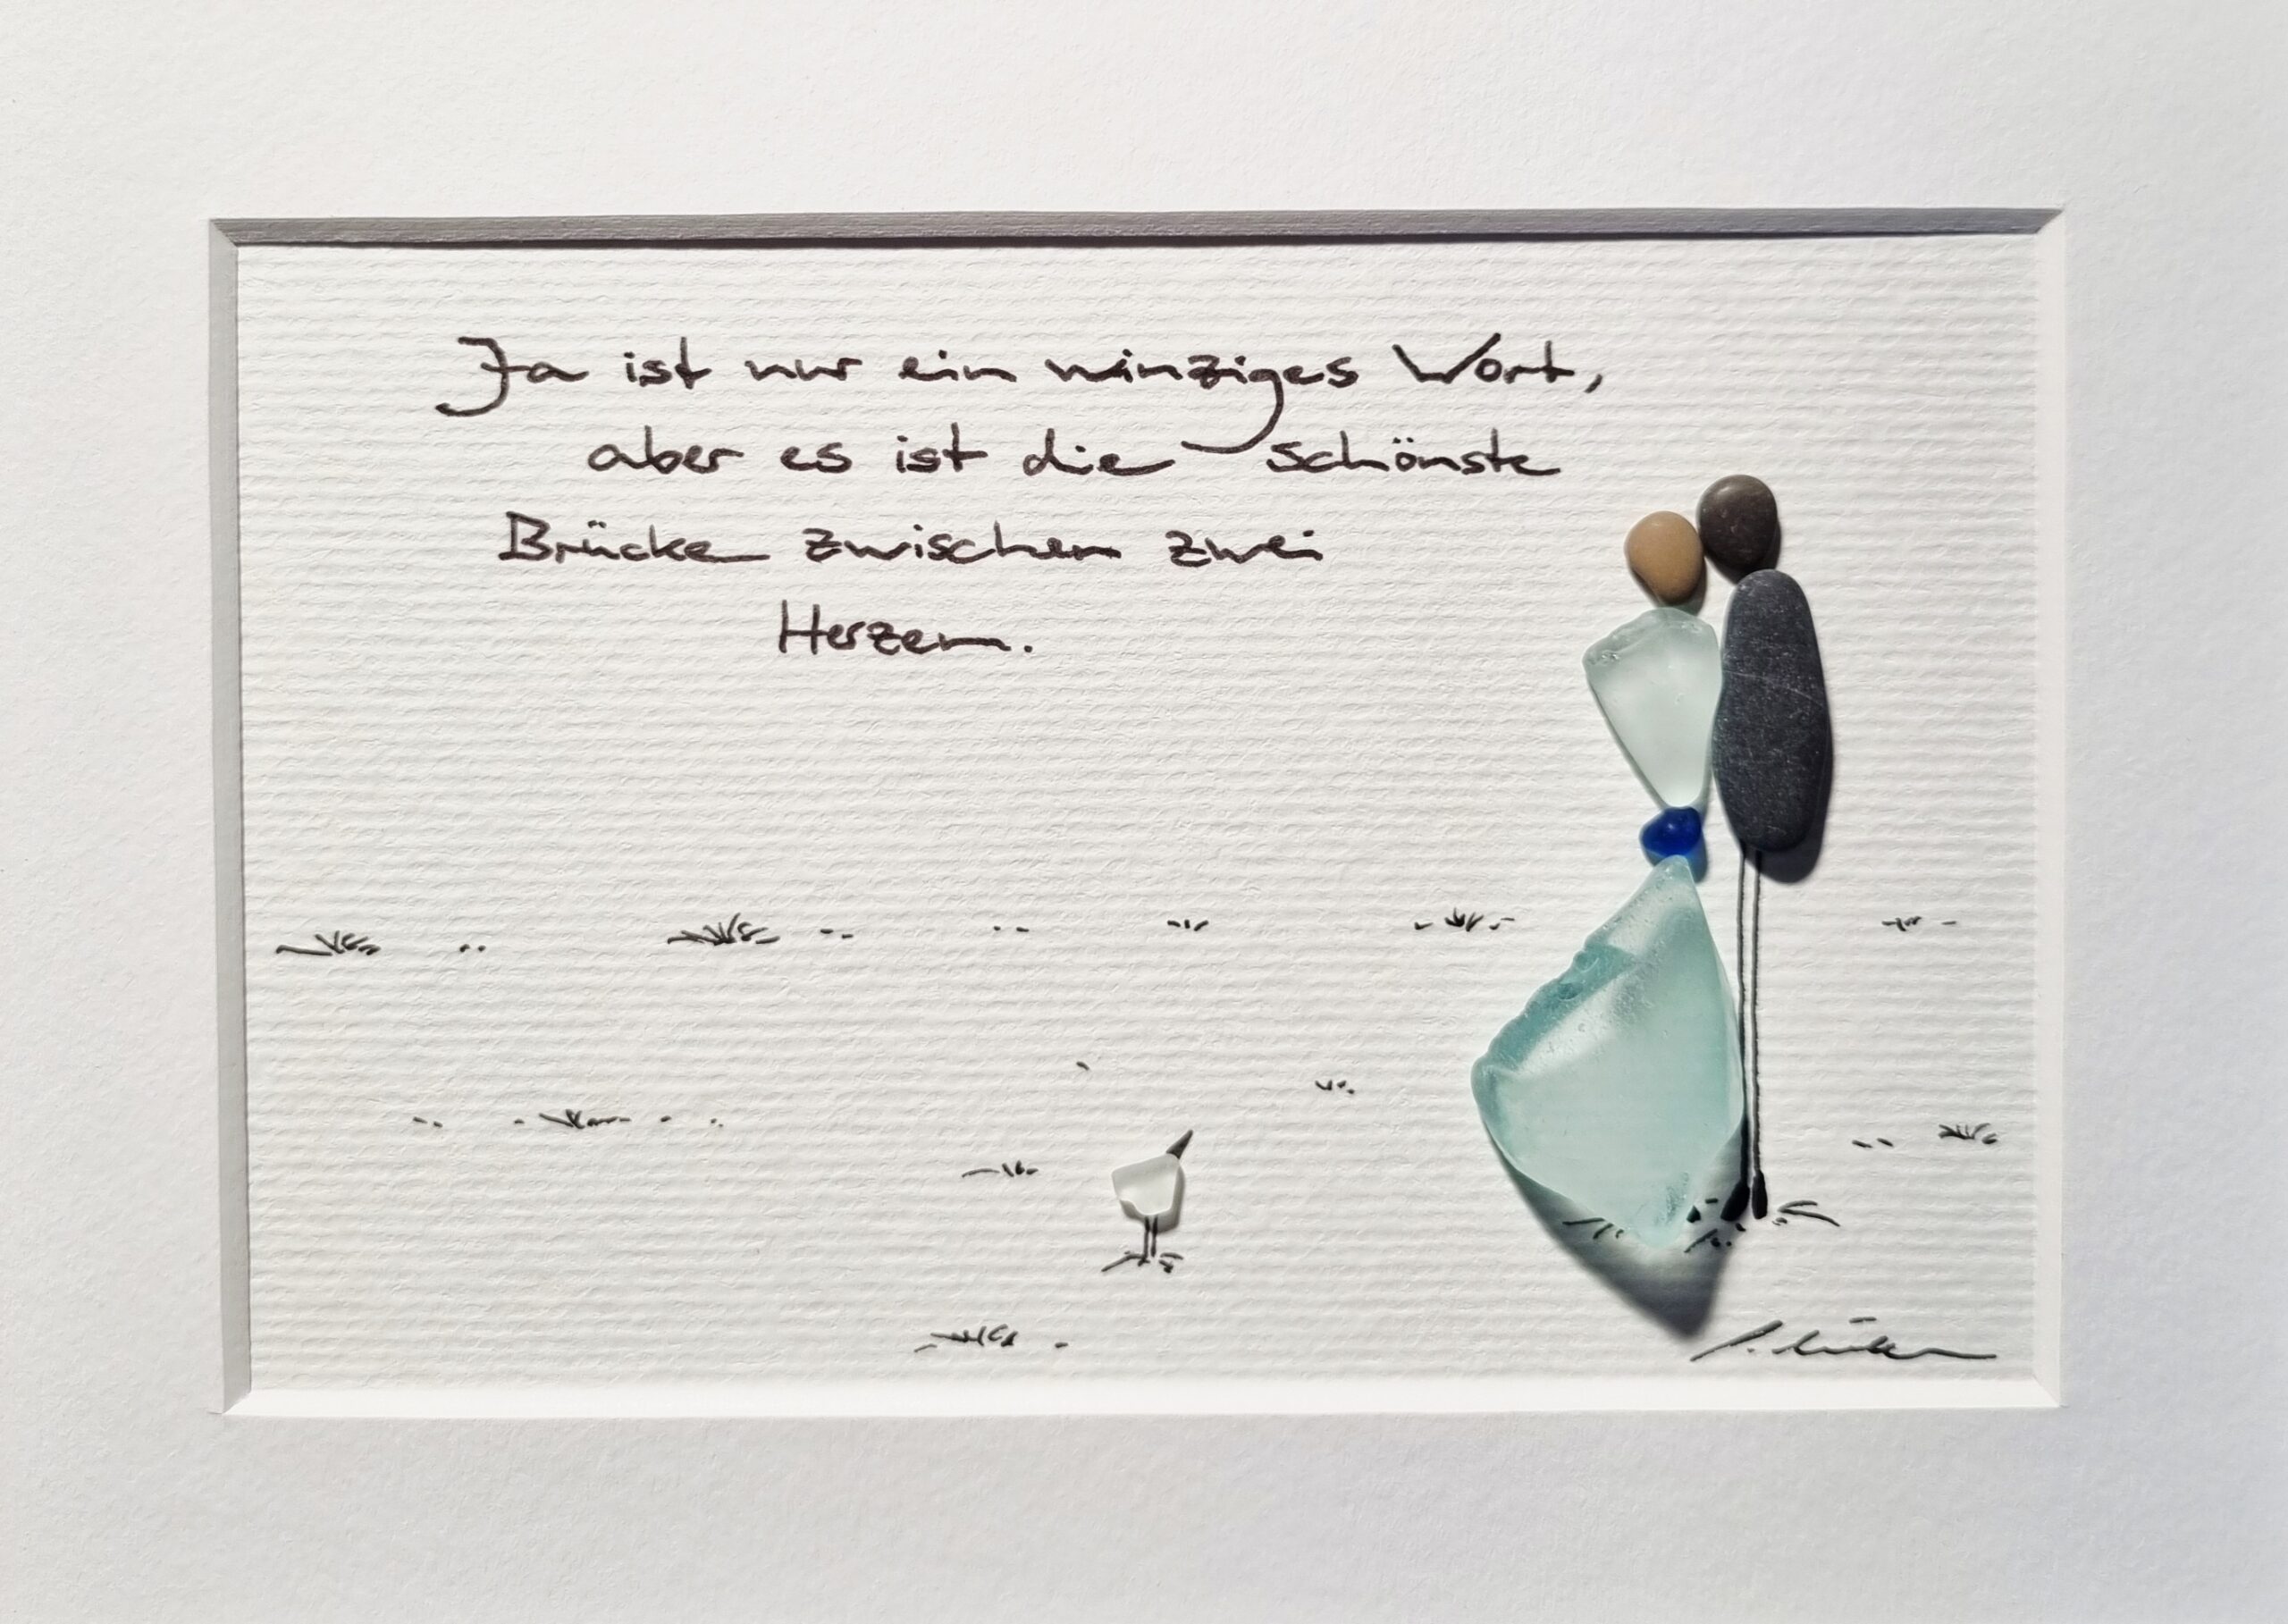 Ja ist nur ein winziges Wort,
aber es ist die schönste
Brücke zwischen zwei
Herzen.